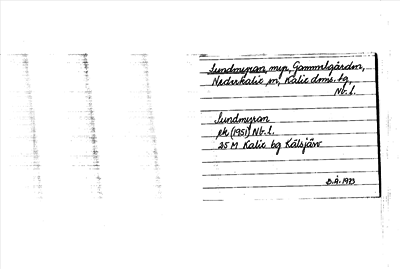 Sundmyran, myr, Gammelgården,
Nederkalix sn, Kalix dms. tg.
Nb. l.
Sundmyran
ek (1951) Nb. l.
25 M Kalix bg Kälsjärv
B.Å. 1973